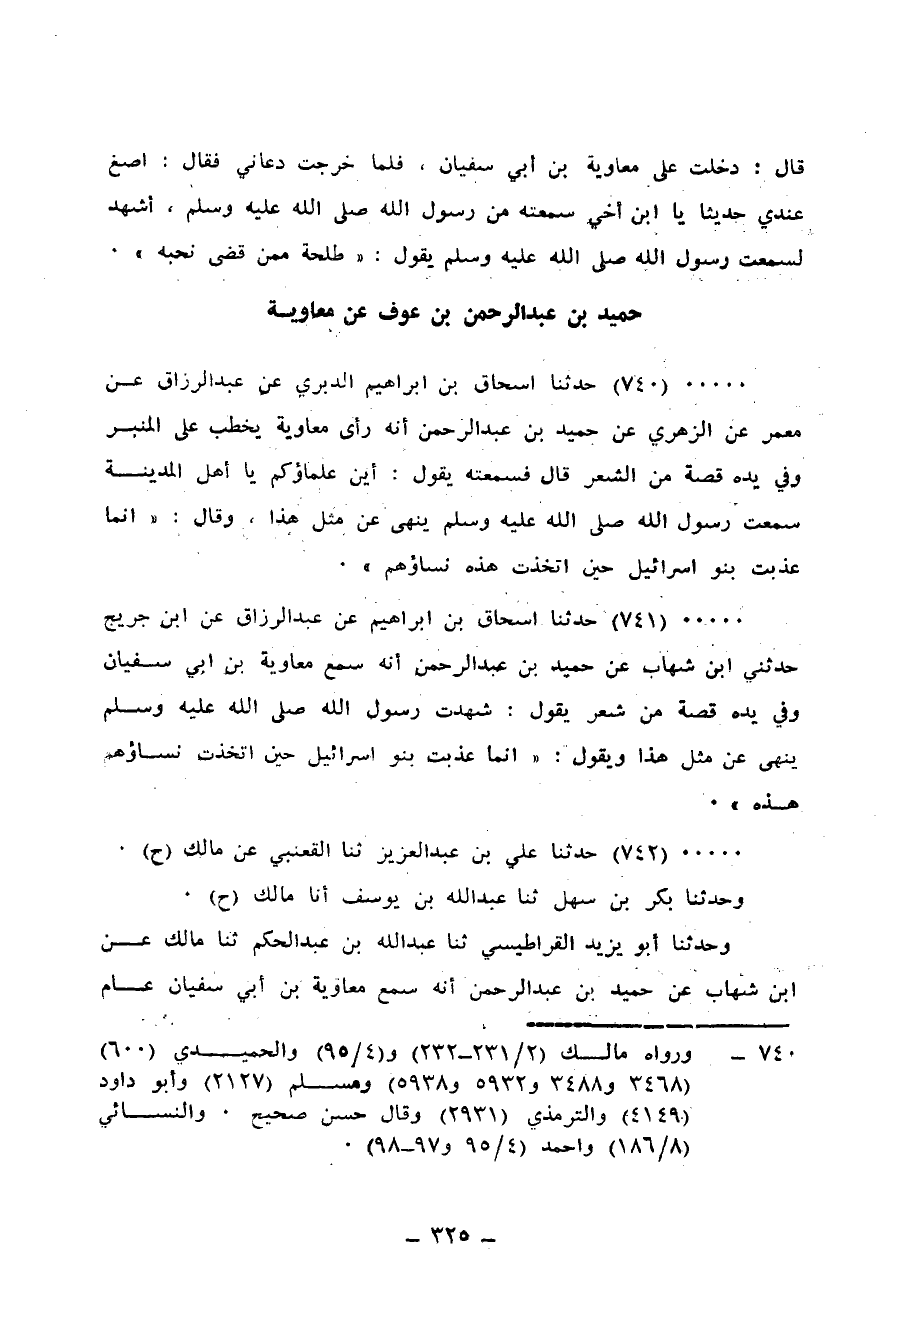 قال : دخلت على معاوية بن أبي سفيان ، فلما خرجت دعاني فقال : اصغ
عندي حديثا يا ابن أخي سمعته من رسول الله صلى الله عليه وسلم ، أشهد
لسمعت رسول الله صلى الله عليه وسلم يقول : « طلحة ممن قضى نحبه » ٠
حميد بن عبدالرحمن بن عوف عن معاويــة
٠٠٠٠٠ (٧٤٠) حدثنا اسحاق بن ابراهيم الدبري عن عبدالرزاق عــن
معمر عن الزهري عن حميد بن عبدالرحمن أنه رأى معاوية يخطب على المنبــر
وفي يده قصة من الشعر قال فسمعته يقول : أين علماؤكم يا أهل المدينــــة
سمعت رسول الله صلى الله عليه وسلم ينهى عن مثل هذا ، وقال : « انما
عذبت بنو اسرائيل حين اتخذت هذه نساؤهم » ٠
٠٠٠٠٠ (٧٤١) حدثنا اسحاق بن ابراهيم عن عبدالرزاق عن ابن جريج
حدثني ابن شهاب عن حميد بن عبدالرحمن أنه سمع معاوية بن ابي ســفيان
وفي يده قصة من شعر يقول : شهدت رسول الله صلى الله عليه وســلم
ينهى عن مثل هذا ويقول : « انما عذبت بنو اسرائيل حين اتخذت نســاؤهم
هــذه » ٠
٠٠٠٠٠ (٧٤٢) حدثنا علي بن عبدالعزيز ثنا القعنبي عن مالك (ح) ٠
وحدثنا بكر بن سهل ثنا عبدالله بن يوسف أنا مالك (ح) ٠
وحدثنا أبو يزيد القراطيسي ثنا عبدالله بن عبدالحكم ثنا مالك عــن
ابن شهاب عن حميد بن عبدالرحمن أنه سمع معاوية بن أبي سفيان عــام
٧٤٠ ـ ورواه مالــك (٢/ ٢٣١ـ٢٣٢) و(٤/ ٩٥) والحميــدي (٦٠٠)
(٣٤٦٨ و٣٤٨٨ و٥٩٣٢ و٥٩٣٨) ومســلم (٢١٢٧) وأبو داود
(٤١٤٩) والترمذي (٢٩٣١) وقال حسن صحيح ٠ والنســائي
(٨/ ١٨٦) واحمد (٤/ ٩٥ و٩٧ـ٩٨) ٠
ـ ٣٢٥ ـ